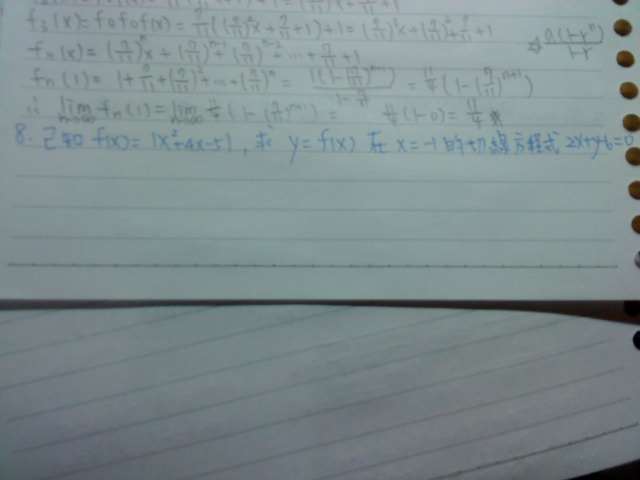 f₃(x) = fofof(x) = 7/11((7/11)²x + 7/11 + 1) + 1 = (7/11)³x + (7/11)² + 7/11 + 1
fn(x) = (7/11)ⁿx + (7/11)ⁿ⁻¹ + (7/11)ⁿ⁻² ... + 7/11 + 1
fn(1) = 1 + 7/11 + (7/11)² + ... + (7/11)ⁿ = 1(1-(7/11)ⁿ⁺¹)/(1-7/11) = 11/4(1-(7/11)ⁿ⁺¹)
∴ lim n→∞ fn(1) = lim n→∞ 11/4(1-(7/11)ⁿ⁺¹) = 11/4(1-0) = 11/4
8. 已知 f(x) = |x²+4x-5|, 求 y = f(x) 在 x = -1 的切線方程式 2x+y-6=0
☆ a(1-rⁿ)/(1-r)